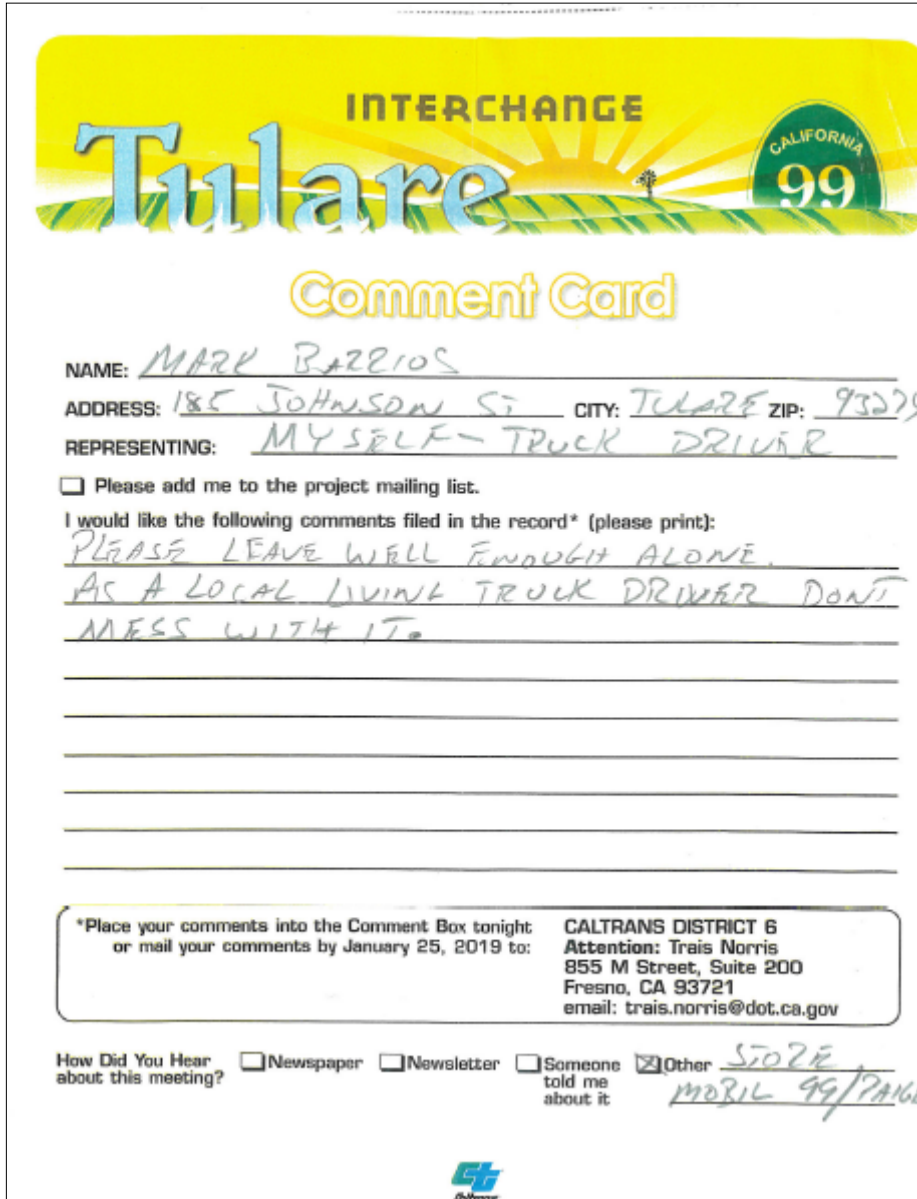 INTERCHANGE
Tulare
CALIFORNIA
99
Comment Card
NAME: MARK BARRIOS
ADDRESS: 185 JOHNSON ST CITY: TULARE ZIP: 93279
REPRESENTING: MYSELF - TRUCK DRIVER
Please add me to the project mailing list.
I would like the following comments filed in the record* (please print):
PLEASE LEAVE WELL ENOUGH ALONE.
AS A LOCAL LIVING TRUCK DRIVER DONT
MESS WITH IT.
*Place your comments into the Comment Box tonight
or mail your comments by January 25, 2019 to:
CALTRANS DISTRICT 6
Attention: Trais Norris
855 M Street, Suite 200
Fresno, CA 93721
email: trais.norris@dot.ca.gov
How Did You Hear about this meeting?
Newspaper
Newsletter
Someone told me about it
Other STORE,
MOBIL 99/PAIGE
Caltrans